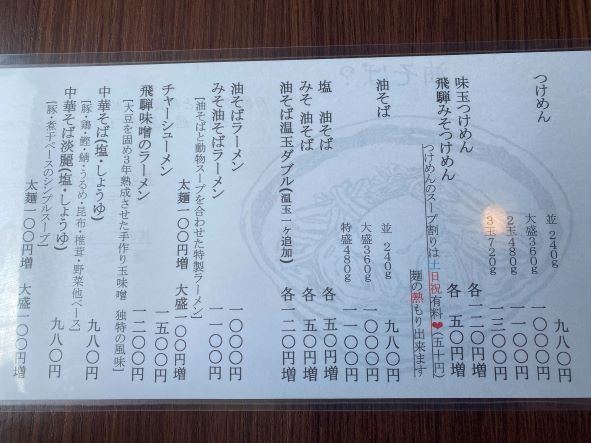 つけめん　並　240g　九八〇円
大盛360g　一〇〇〇円
2玉480g　一一〇〇円
3玉720g　一三〇〇円
味玉つけめん　各　一二〇円増
飛騨みそつけめん　各　五〇円増
つけめんのスープ割りは土日祝有料❤(五十円)
麺の熱もり出来ます
油そば　並　240g　九八〇円
大盛360g　一〇〇〇円
特盛480g　一一〇〇円
塩　油そば　各　五〇円増
みそ　油そば　各　五〇円増
油そば温玉ダブル(温玉一ヶ追加)　各　一〇〇円増
油そばラーメン　一〇〇〇円
みそ油そばラーメン　一一〇〇円
[油そばと動物スープを合わせた特製ラーメン]
太麺一〇〇円増　大盛一〇〇円増
チャーシューメン　一五〇〇円
飛騨味噌のラーメン　一二〇〇円
[大豆を固め3年熟成させた手作り玉味噌　独特の風味]
中華そば(塩・しょうゆ)　九八〇円
[豚・鶏・鰹・鯖・うるめ・昆布・椎茸・野菜他ベース]
中華そば淡麗(塩・しょうゆ)　九八〇円
[豚・煮干ベースのシンプルスープ]
太麺一〇〇円増　大盛一〇〇円増